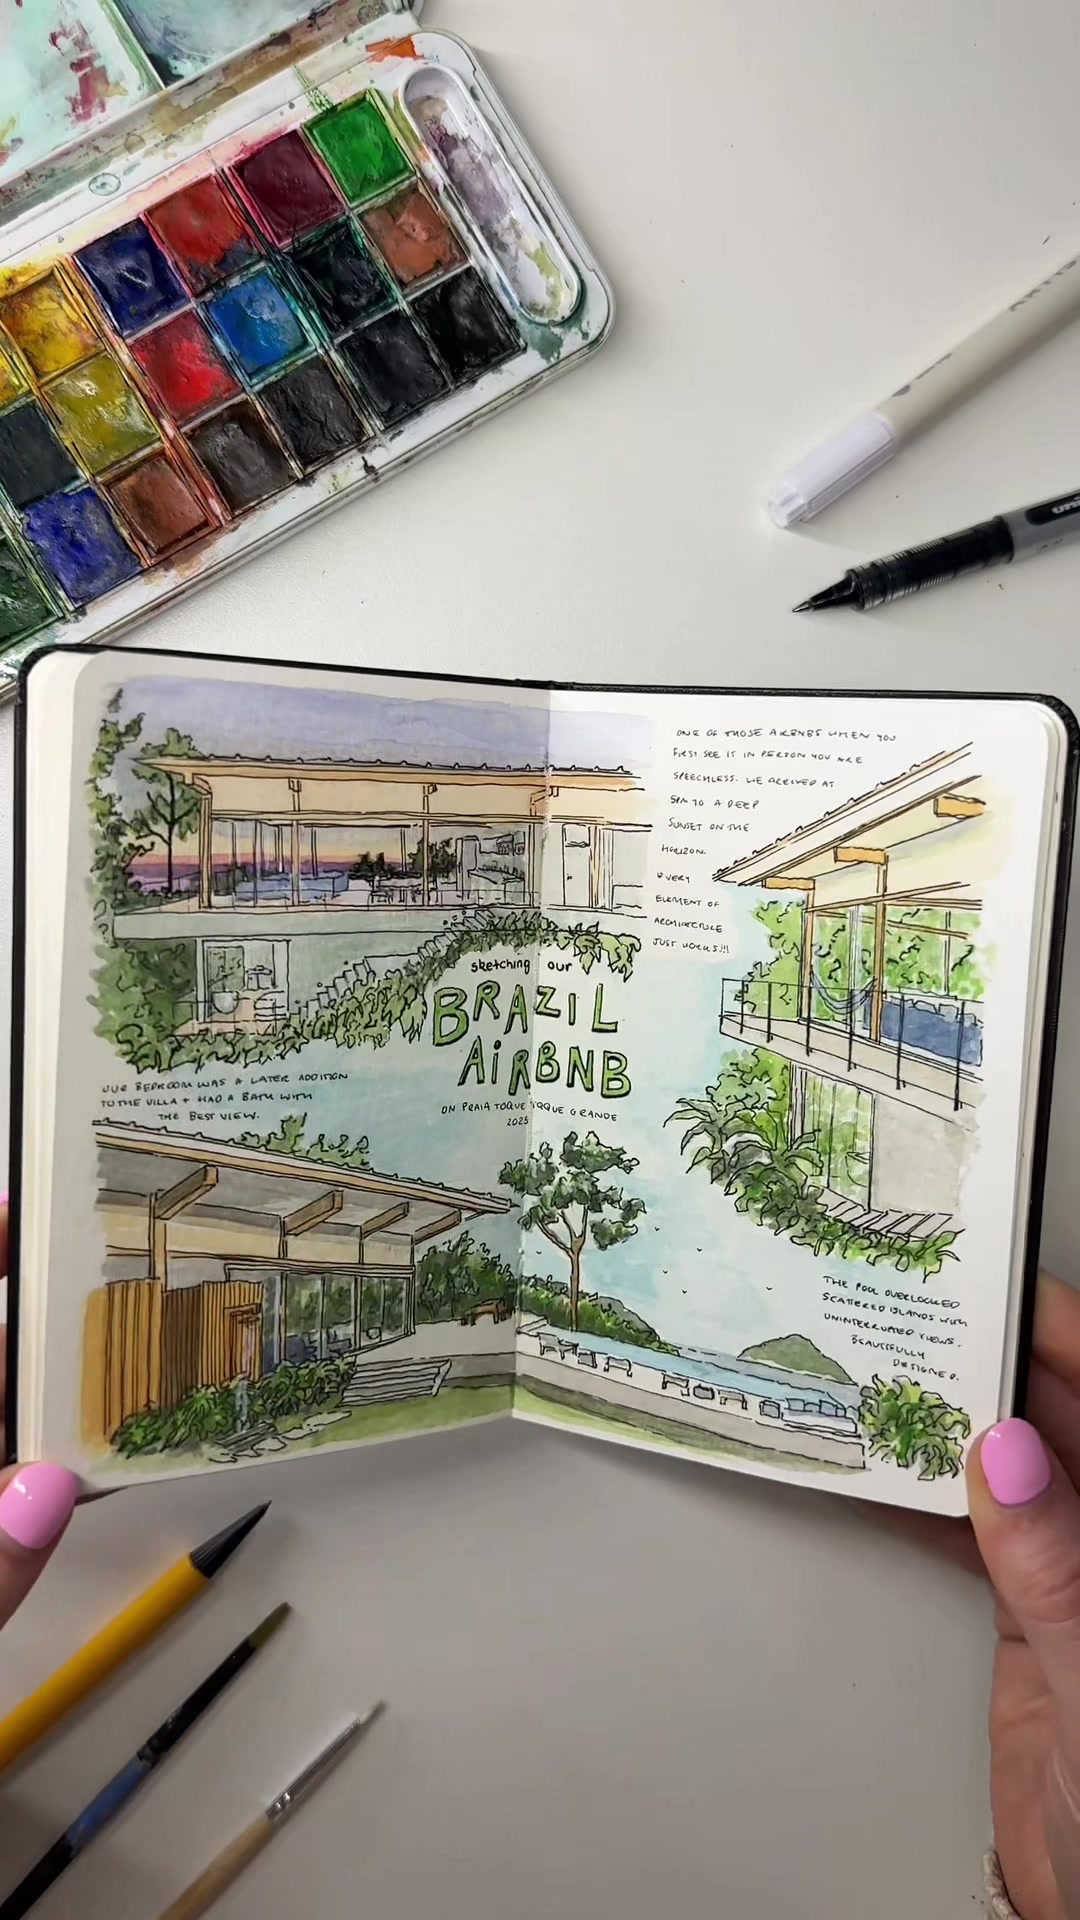 ONE OF THOSE AIRBNBS WHEN YOU
FIRST SEE IT IN PERSON YOU ARE
SPEECHLESS. WE ARRIVED AT
5PM TO A DEEP
SUNSET ON THE
HORIZON.
EVERY
ELEMENT OF
ARCHITECTURE
JUST WORKS!!!
sketching our
BRAZIL
AiRBNB
ON PRAIA TOQUE TOQUE GRANDE
2025
OUR BEDROOM WAS A LATER ADDITION
TO THE VILLA + HAD A BATH WITH
THE BEST VIEW.
THE POOL OVERLOOKED
SCATTERED ISLANDS WITH
UNINTERRUPTED VIEWS.
BEAUTIFULLY
DESIGNED.